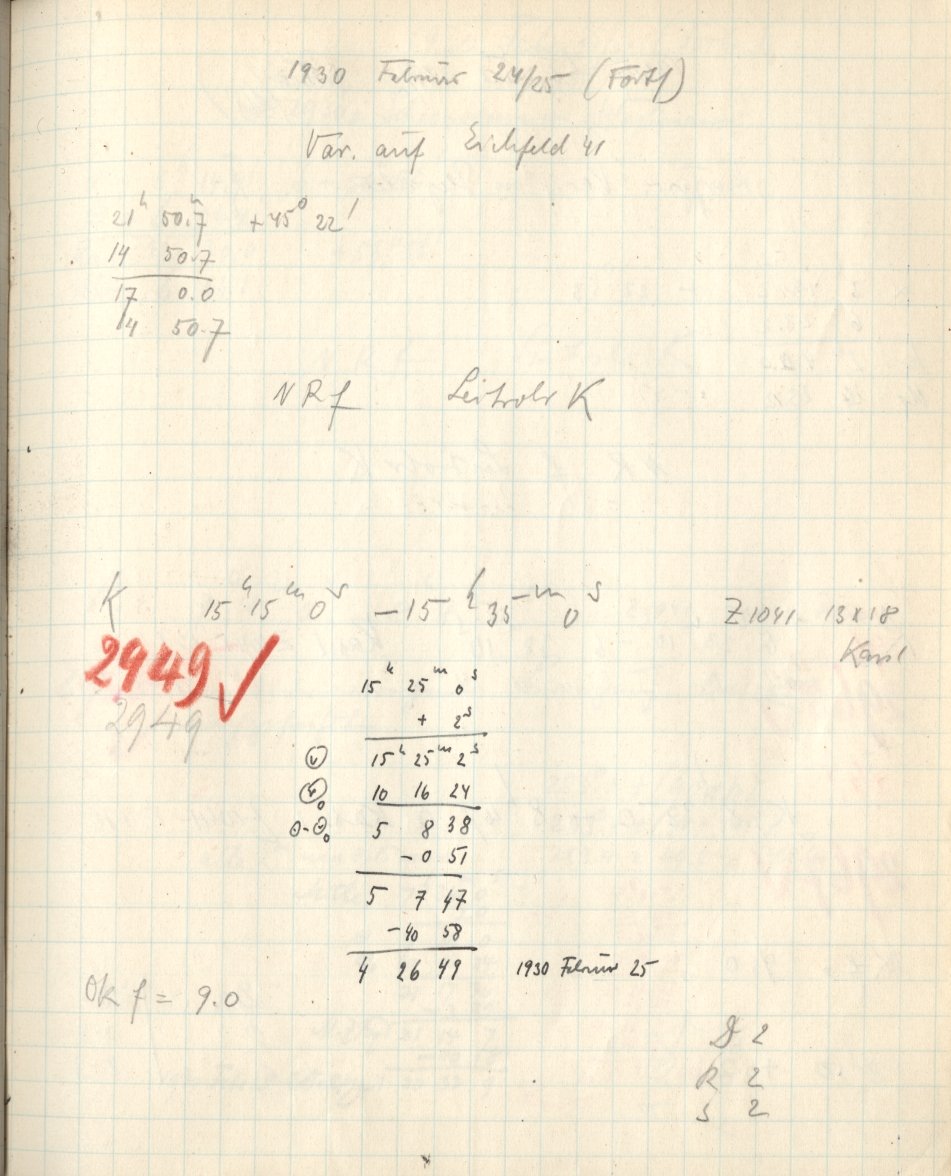 1930 Februar 24/25 (Forts)
Var. auf Eichfeld 41
21ʰ 50.7 +45° 22'
14 50.7
17 0.0
14 50.7
NRf Leitrohr K
K 15ʰ 15ᵐ 0ˢ – 15ʰ 35ᵐ 0ˢ Z 1041 13x18
2949 ✓
2949
15ʰ 25ᵐ 0ˢ
+ 2ˢ
15ʰ 25ᵐ 2ˢ
10 16 24
Θ-Θ₀ 5 8 38
-0 51
5 7 47
-40 58
4 26 49 1930 Februar 25
Ok f = 9.0
D 2
R 2
S 2